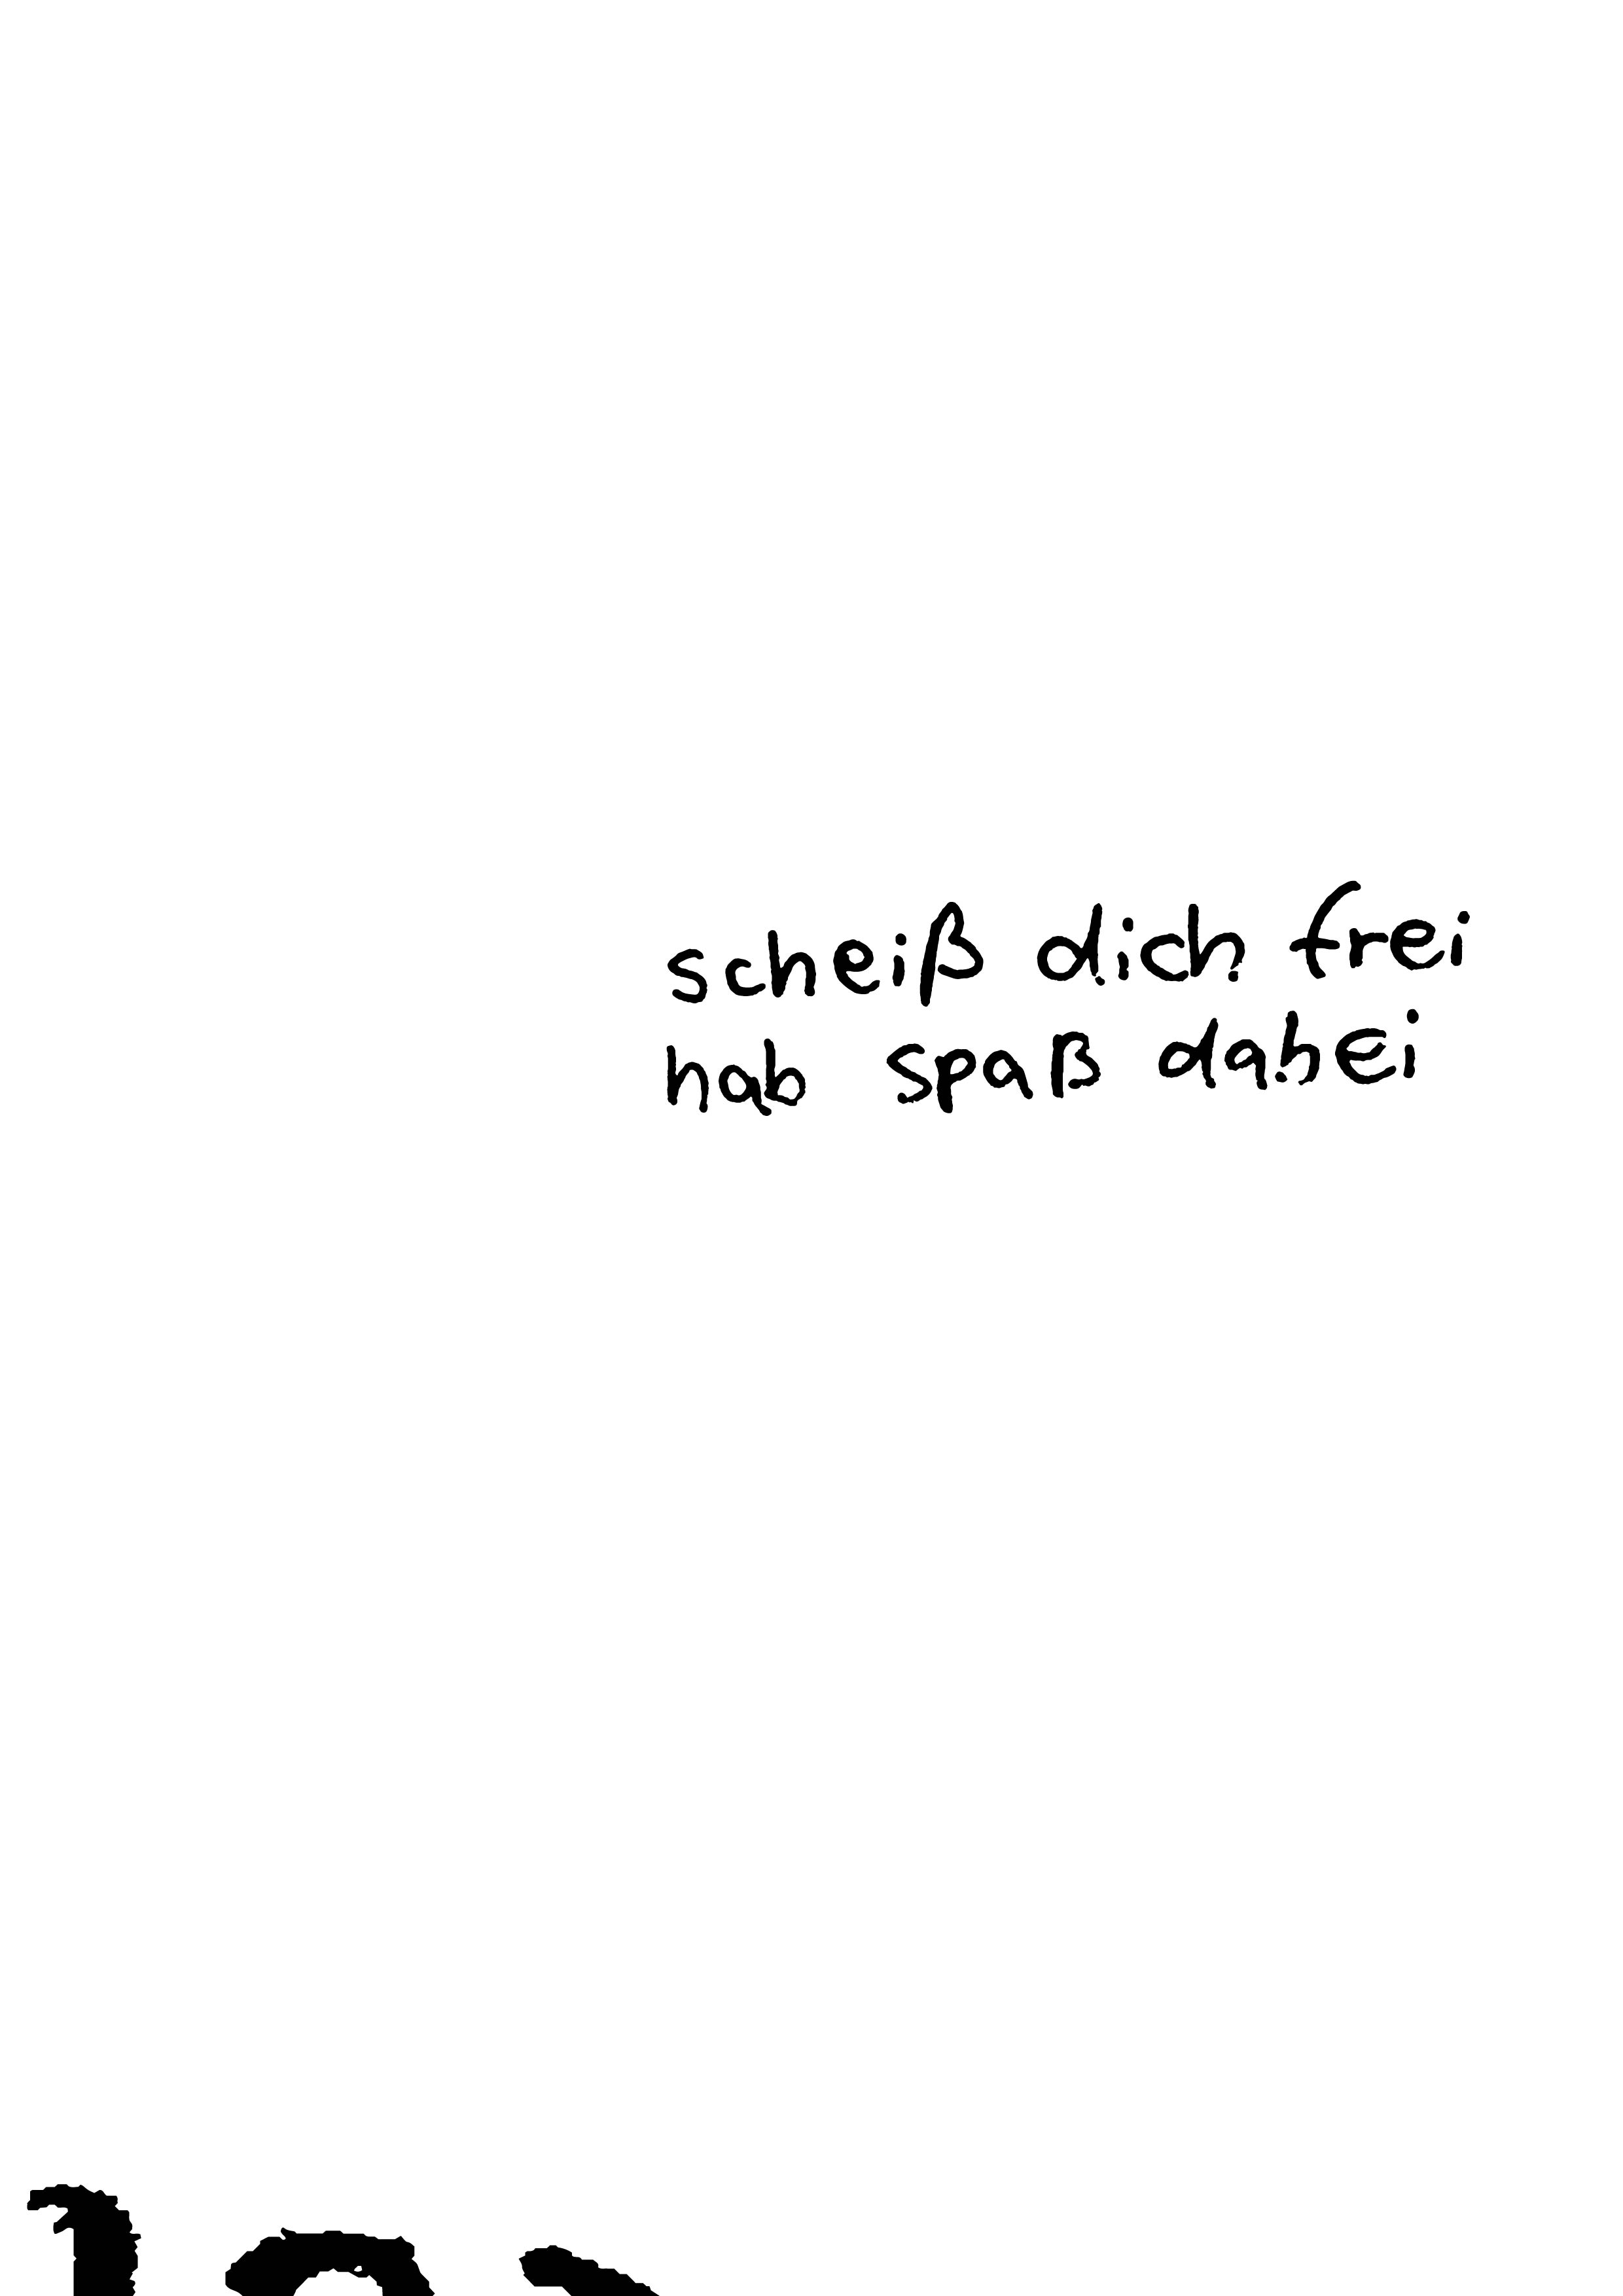 scheiß dich frei
hab spaß dabei